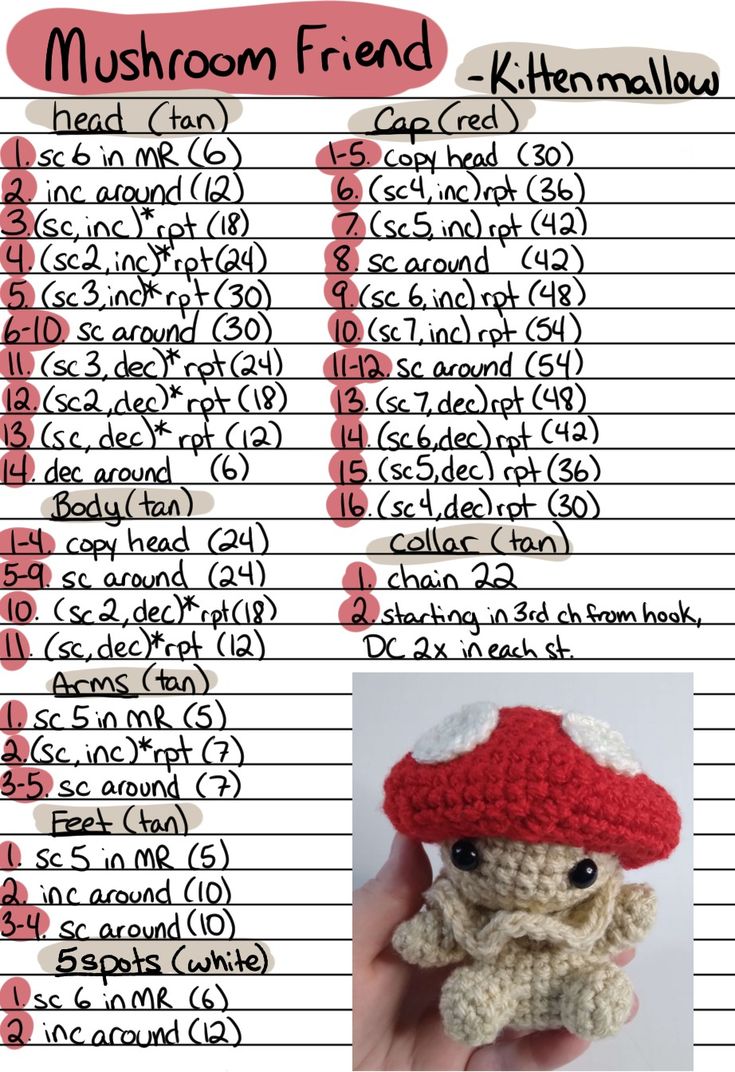 Mushroom Friend
-Kittenmallow
head (tan)
1. sc 6 in MR (6)
2. inc around (12)
3. (sc, inc)* rpt (18)
4. (sc2, inc)* rpt (24)
5. (sc3, inc)* rpt (30)
6-10. sc around (30)
11. (sc3, dec)* rpt (24)
12. (sc2, dec)* rpt (18)
13. (sc, dec)* rpt (12)
14. dec around (6)
Body (tan)
1-4. copy head (24)
5-9. sc around (24)
10. (sc2, dec)* rpt (18)
11. (sc, dec)* rpt (12)
Arms (tan)
1. sc 5 in MR (5)
2. (sc, inc)* rpt (7)
3-5. sc around (7)
Feet (tan)
1. sc 5 in MR (5)
2. inc around (10)
3-4. sc around (10)
5 spots (white)
1. sc 6 in MR (6)
2. inc around (12)
Cap (red)
1-5. copy head (30)
6. (sc4, inc) rpt (36)
7. (sc5, inc) rpt (42)
8. sc around (42)
9. (sc 6, inc) rpt (48)
10. (sc7, inc) rpt (54)
11-12. sc around (54)
13. (sc7, dec) rpt (48)
14. (sc6, dec) rpt (42)
15. (sc5, dec) rpt (36)
16. (sc4, dec) rpt (30)
collar (tan)
1. chain 22
2. starting in 3rd ch from hook,
DC 2x in each st.